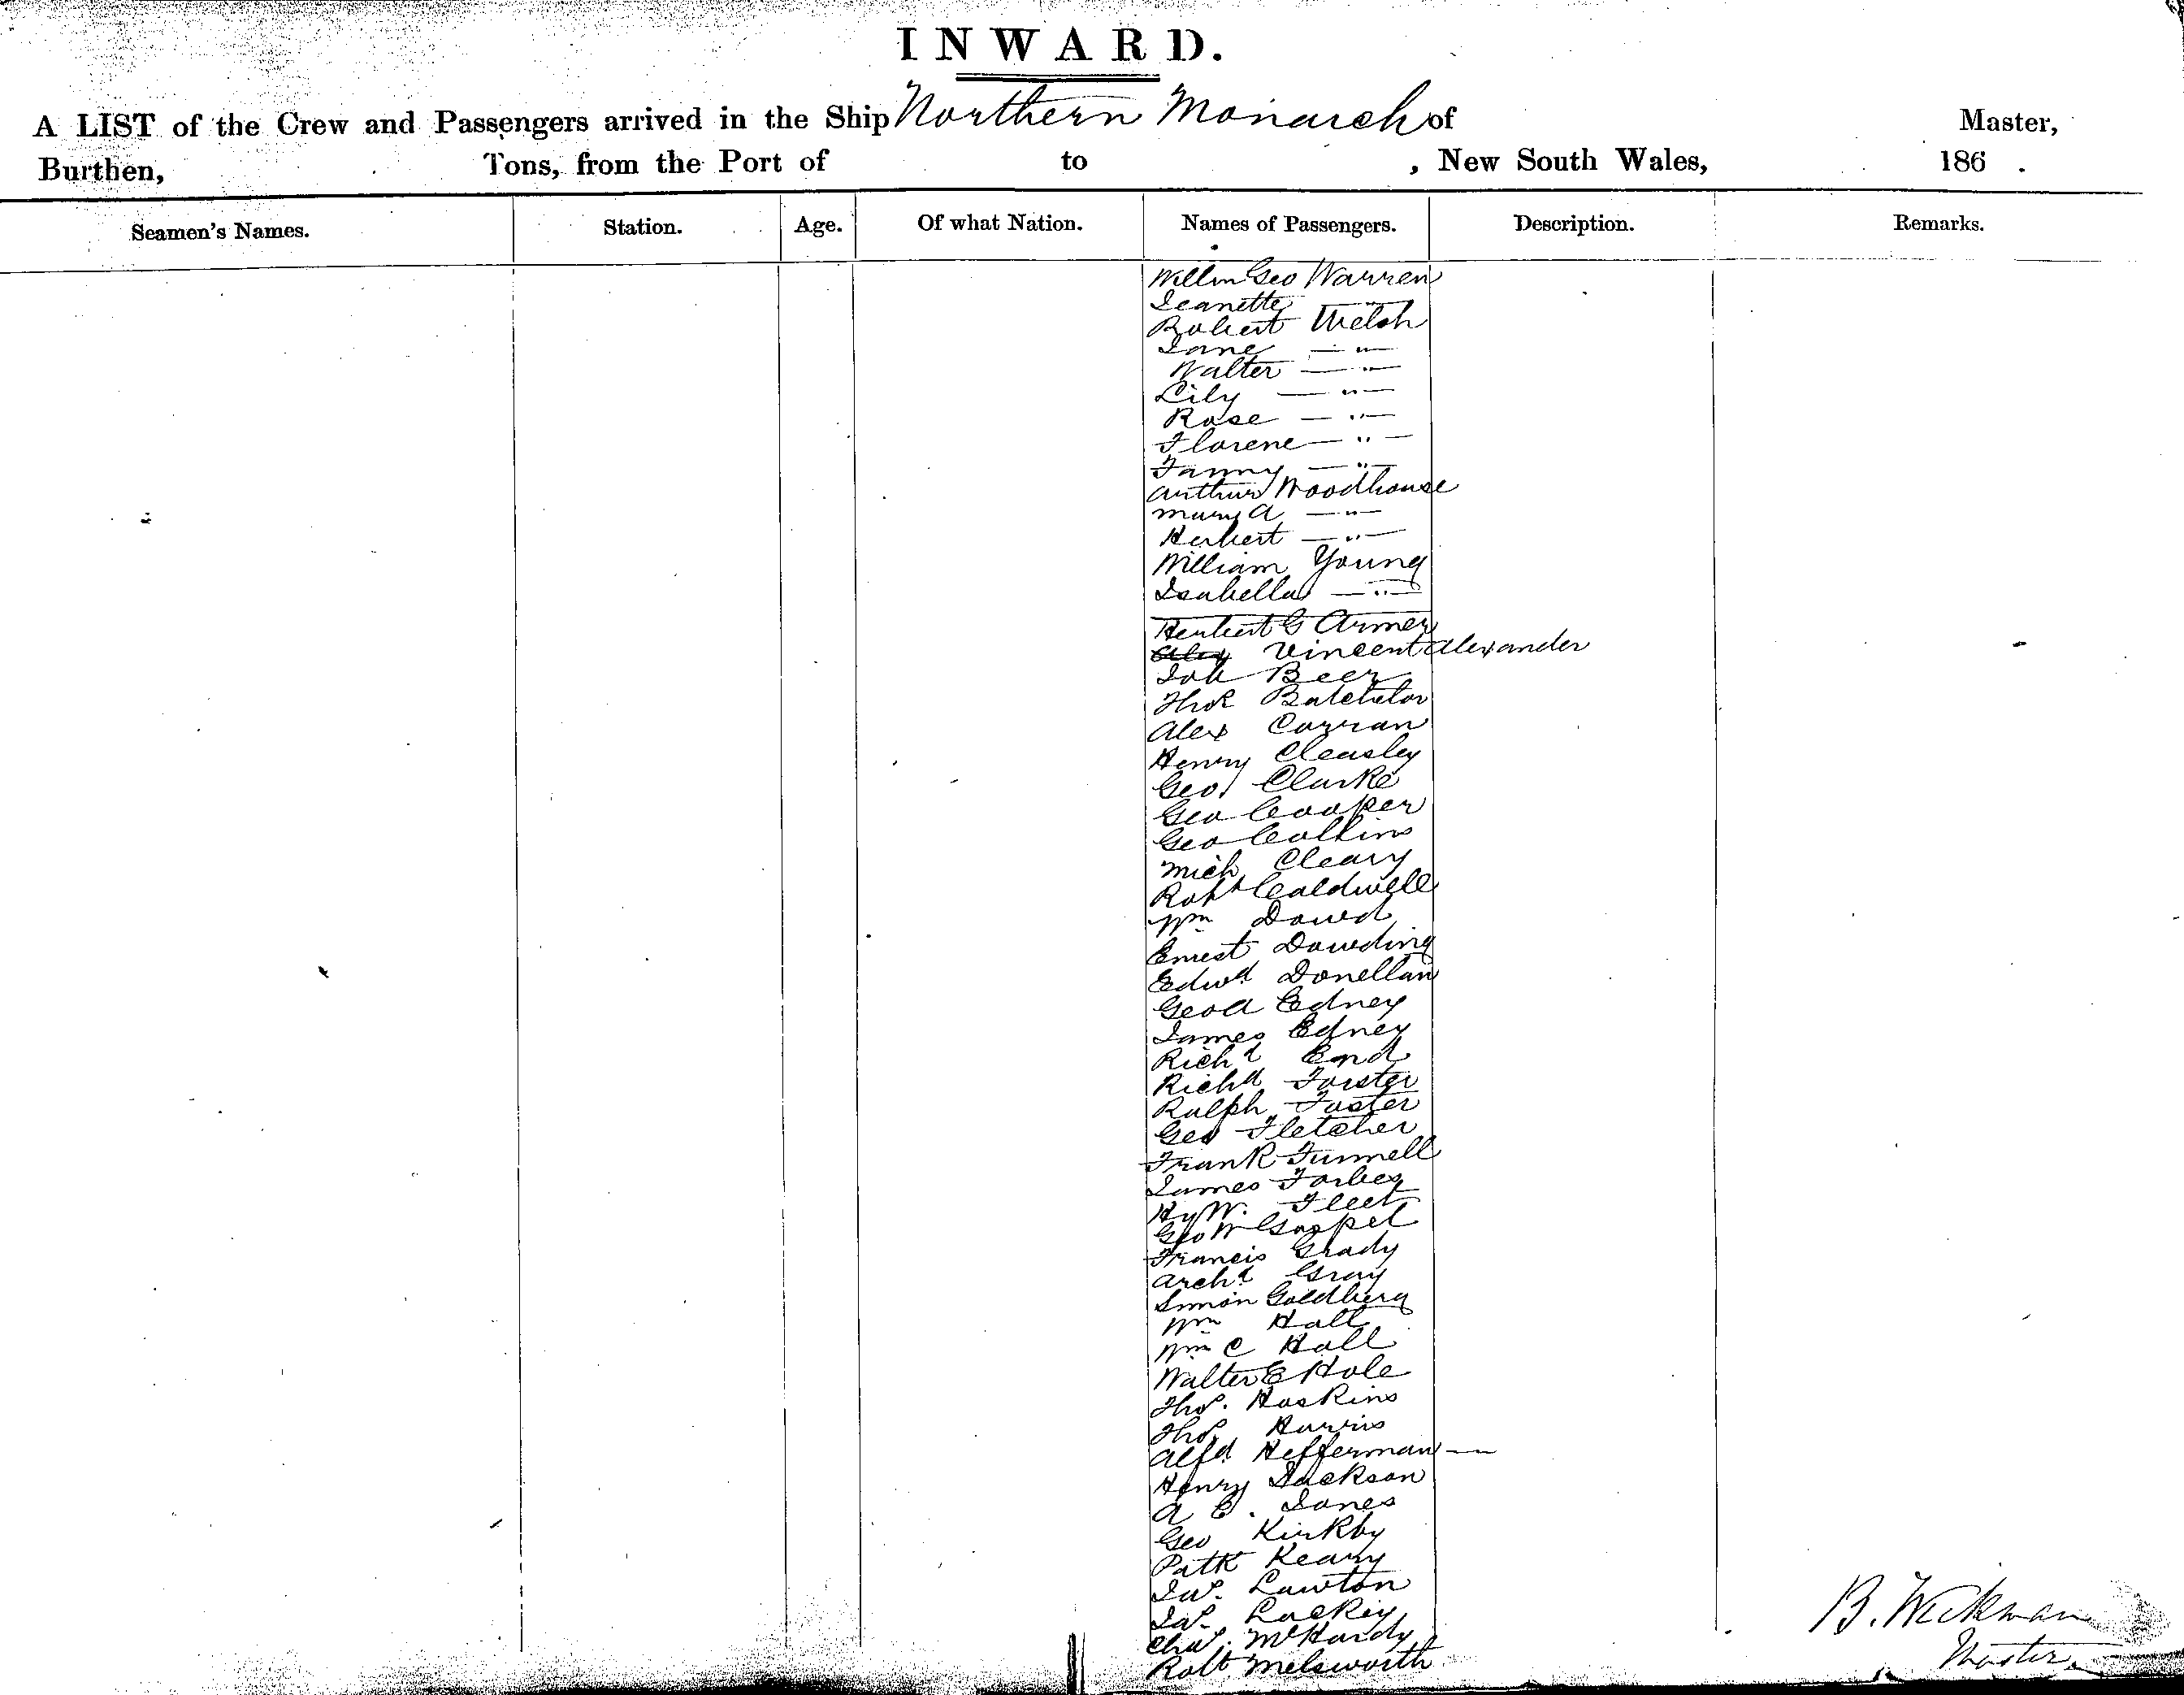 INWARD.
A LIST of the Crew and Passengers arrived in the Ship Northern Monarch of Master,
Burthen, Tons, from the Port of to , New South Wales, 186 .
Seamen's Names. Station. Age. Of what Nation. Names of Passengers. Description. Remarks.
Willm Geo Warren
Jeanette
Robert Welsh
Jane — " —
Walter — " —
Lily — " —
Rose — " —
Florene — " —
Fanny — " —
Arthur Woodhouse
Mary A — " —
Herbert — " —
William Young
Isabella — " —
Herbert G Armer
Alex Vincent Alexander
Job Beer
Thos Batchelor
Alex Curran
Henry Cleasley
Geo Clarke
Geo Cooper
Geo Collins
Mich Cleary
Robt Caldwell
Wm Dowd
Ernest Dowding
Edwd Donellan
Geo A Edney
James Edney
Richd End
Richd Forster
Ralph Foster
Geo Fletcher
Frank Funnell
James Forbes
Hy W. Fleet
Geo W Gospel
Francis Grady
Archd Gray
Simon Goldberg
Wm Hall
Wm C Hall
Walter E Hole
Thos. Hoskins
Thos Harris
Alfd Hefferman —
Henry Jackson
A E. Jones
Geo Kirkby
Patk Keany
Jas. Lawton
Jas. Lackey
Chas. McHardy
Robt Melsworth
B. Wickman
Master